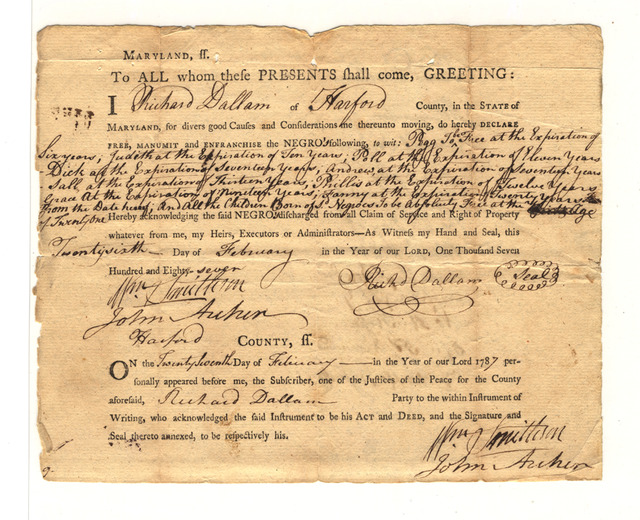 MARYLAND, ſſ.
To ALL whom theſe PRESENTS ſhall come, GREETING:
I Richard Dallam of Harford County, in the STATE of
MARYLAND, for divers good Cauſes and Conſiderations me thereunto moving, do hereby DECLARE
FREE, MANUMIT and ENFRANCHISE the NEGROE following, to wit: Pegg To be Free at the Expiration of
Six years; Judeth at the Expiration of Ten Years; Poll at the Expiration of Eleven Years
Dick at the Expiration of Seventeen Years, Andrew at the Expiration of Seventeen Years
Sall at the Expiration of Thirteen Years, Phillis at the Expiration of Twelve Years
Grace at the Expiration of Nineteen Years, Fanny at the Expiration of Twenty Years
From the Date hereof, And All the Children Born of Sd. Negroes To be Absolutely Free at the
of Twenty One Hereby acknowledging the ſaid NEGROE diſcharged from all Claim of Service and Right of Property Age
whatever from me, my Heirs, Executors or Adminiſtrators—As Witneſs my Hand and Seal, this
Twenty sixth Day of February in the Year of our LORD, One Thouſand Seven
Hundred and Eighty-seven
Richd Dallam Seal
Wm Smithson
John Archer
Harford COUNTY, ſſ.
ON the Twenty Seventh Day of February in the Year of our Lord 1787 per-
ſonally appeared before me, the Subſcriber, one of the Juſtices of the Peace for the County
aforeſaid, Richard Dallam Party to the within Inſtrument of
Writing, who acknowledged the ſaid Inſtrument to be his ACT and DEED, and the Signature and
Seal thereto annexed, to be reſpectively his.
Wm Smithson
John Archer